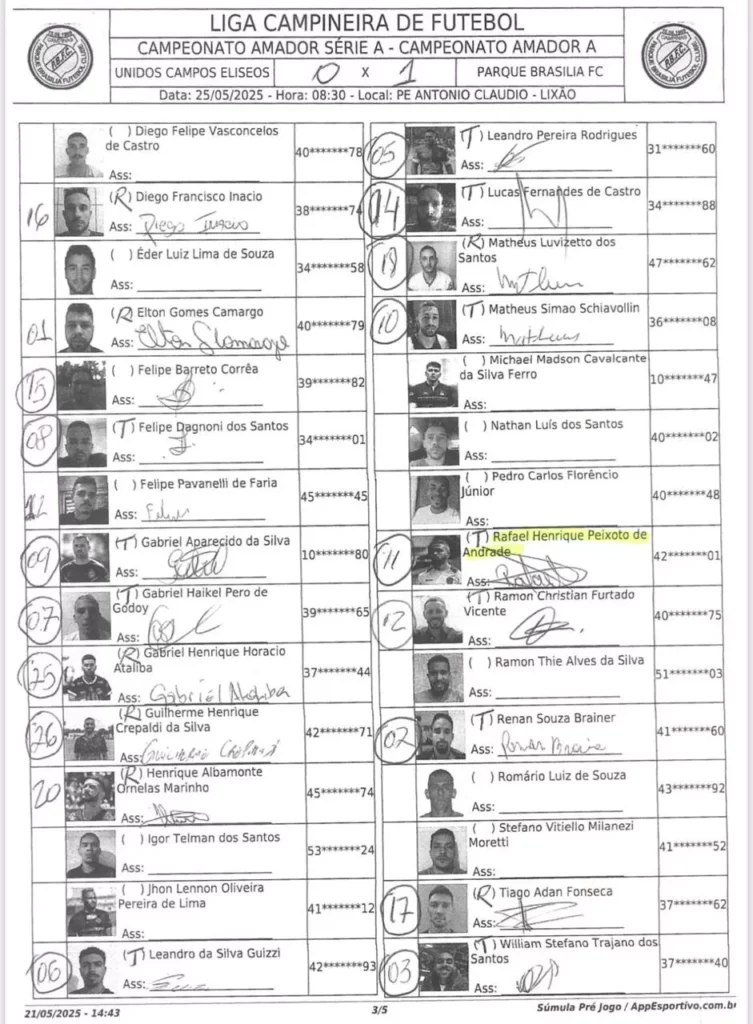 LIGA CAMPINEIRA DE FUTEBOL
CAMPEONATO AMADOR SÉRIE A - CAMPEONATO AMADOR A
UNIDOS CAMPOS ELISEOS 0 X 1 PARQUE BRASILIA FC
Data: 25/05/2025 - Hora: 08:30 - Local: PE ANTONIO CLAUDIO - LIXÃO
( ) Diego Felipe Vasconcelos
de Castro
40*******78
Ass:
16 (R) Diego Francisco Inacio
38*******74
Ass: Diego Inacio
( ) Éder Luiz Lima de Souza
34*******58
Ass:
01 (R) Elton Gomes Camargo
40*******79
Ass: Elton G Camargo
15 ( ) Felipe Barreto Corrêa
39*******82
Ass:
08 (T) Felipe Dagnoni dos Santos
34*******01
Ass:
12 ( ) Felipe Pavanelli de Faria
45*******45
Ass: Felipe
09 (T) Gabriel Aparecido da Silva
10*******80
Ass:
07 (T) Gabriel Haikel Pero de
Godoy
39*******65
Ass:
25 (R) Gabriel Henrique Horacio
Ataliba
37*******44
Ass: Gabriel Ataliba
26 (R) Guilherme Henrique
Crepaldi da Silva
42*******71
Ass: Guilherme Crepaldi
20 (R) Henrique Albamonte
Ornelas Marinho
45*******74
Ass:
( ) Igor Telman dos Santos
53*******24
Ass:
( ) Jhon Lennon Oliveira
Pereira de Lima
41*******12
Ass:
06 (T) Leandro da Silva Guizzi
42*******93
Ass:
05 (T) Leandro Pereira Rodrigues
31*******60
Ass:
14 (T) Lucas Fernandes de Castro
34*******88
Ass:
(R) Matheus Luvizetto dos
Santos
47*******62
Ass: Matheus
10 (T) Matheus Simao Schiavollin
36*******08
Ass: Matheus
( ) Michael Madson Cavalcante
da Silva Ferro
10*******47
Ass:
( ) Nathan Luís dos Santos
40*******02
Ass:
( ) Pedro Carlos Florêncio
Júnior
40*******48
Ass:
11 (T) Rafael Henrique Peixoto de
Andrade
42*******01
Ass: Rafael
12 (T) Ramon Christian Furtado
Vicente
40*******75
Ass:
( ) Ramon Thie Alves da Silva
51*******03
Ass:
02 (T) Renan Souza Brainer
41*******60
Ass: Renan Brainer
( ) Romário Luiz de Souza
43*******92
Ass:
( ) Stefano Vitiello Milanezi
Moretti
41*******52
Ass:
17 (R) Tiago Adan Fonseca
37*******62
Ass:
03 (T) William Stefano Trajano dos
Santos
37*******40
Ass:
21/05/2025 - 14:43 3/5 Súmula Pré Jogo / AppEsportivo.com.br